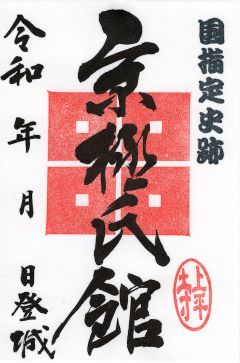 国指定史跡
京極氏館
令和 年 月 日登城
上平寺